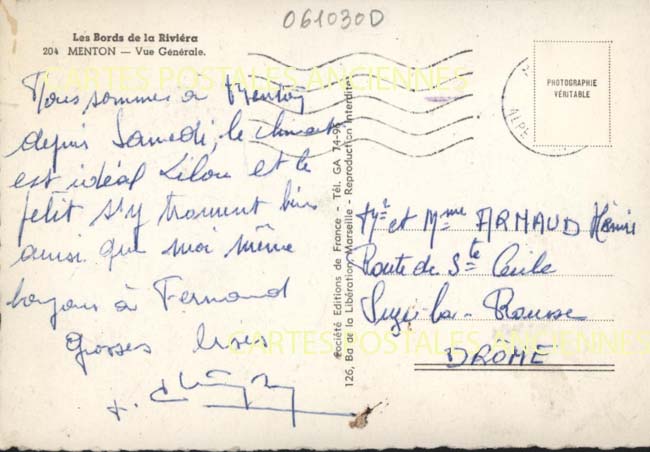 061030D
Les Bords de la Riviéra
204 MENTON — Vue Générale.
CARTES POSTALES ANCIENNES
Nous sommes à Menton
depuis Samedi, le climat
est idéal Lilou et le
petit s'y trouvent bien
ainsi que moi même
bonjour à Fernand
Grosses bises
PHOTOGRAPHIE
VÉRITABLE
ALPE
Société Editions de France - Tél. GA 74-95
126, Bd de la Libération, Marseille - Reproduction Interdite
Mr et Mme ARNAUD
Route de Ste Cécile
Suze-la-Rousse
DROME
CARTES POSTALES ANCIENNES